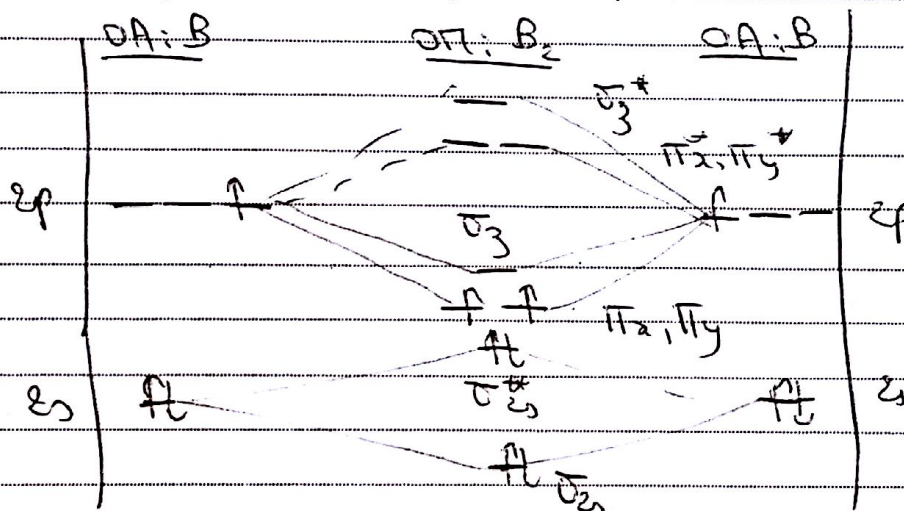 OA: B OM: B₂ OA: B
σ₃*
πx*, πy*
2p 2p
σ₃
πx, πy
2s σ₂s* 2s
σ₂s